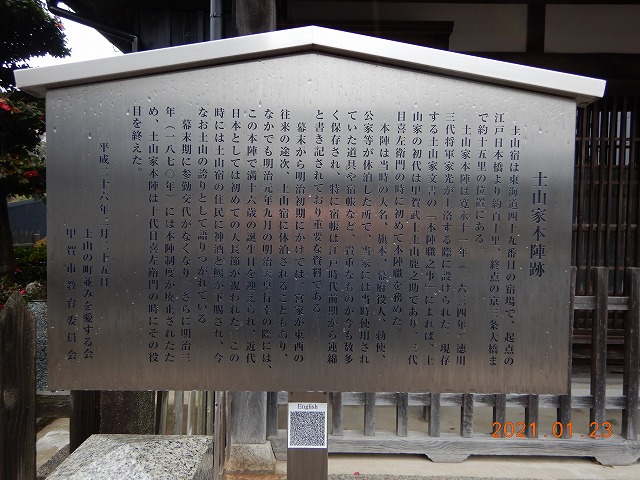 土山家本陣跡
土山宿は東海道四十九番目の宿場で、起点の
江戸日本橋より約百十里、終点の京三条大橋ま
で約十五里の位置にある。
土山家本陣は寛永十一年（一六三四年）、徳川
三代将軍家光が上洛する際に設けられた。現存
する土山家文書の「本陣職之事」によれば、土
山家の初代は甲賀武士土山鹿之助であり、三代
目喜左衛門の時に初めて本陣職を務めた。
本陣は当時の大名、旗本、幕府役人、勅使、
公家等が休泊した所で、当家には当時使用され
ていた道具や宿帳など、貴重なものが今も数多
く保存され、特に宿帳は江戸時代前期から連綿
と書き記されており重要な資料である。
幕末から明治初期にかけては、宮家が東西の
往来の途次、土山宿に休泊されることもあり、
なかでも明治元年九月の明治天皇行幸の際には、
この本陣で満十六歳の誕生日を迎えられ、近代
日本としては初めての天長節が祝われた。この
時には土山宿の住民に神酒と鯣が下賜され、今
なお土山の誇りとして語りつがれている。
幕末期に参勤交代がなくなり、さらに明治三
年（一八七〇年）には本陣制度が廃止されたた
め、土山家本陣は十代目喜左衛門の時にその役
目を終えた。
平成二十六年三月二十五日
土山の町並みを愛する会
甲賀市教育委員会
English
2021.01.23